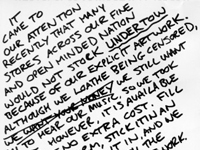 IT CAME TO
OUR ATTENTION
RECENTLY THAT MANY
STORES ACROSS OUR FINE
AND OPEN MINDED NATION
WOULD NOT STOCK UNDERTOW
BECAUSE OF OUR EXPLICIT ARTWORK.
ALTHOUGH WE LOATHE BEING CENSORED,
WE WANT YOUR MONEY WE STILL WANT
TO HEAR OUR MUSIC, SO WE TOOK
HOWEVER, IT IS AVAILABLE
NO EXTRA COST. FILL
STICK IT IN
IT IN AND WE
THE
WORK.